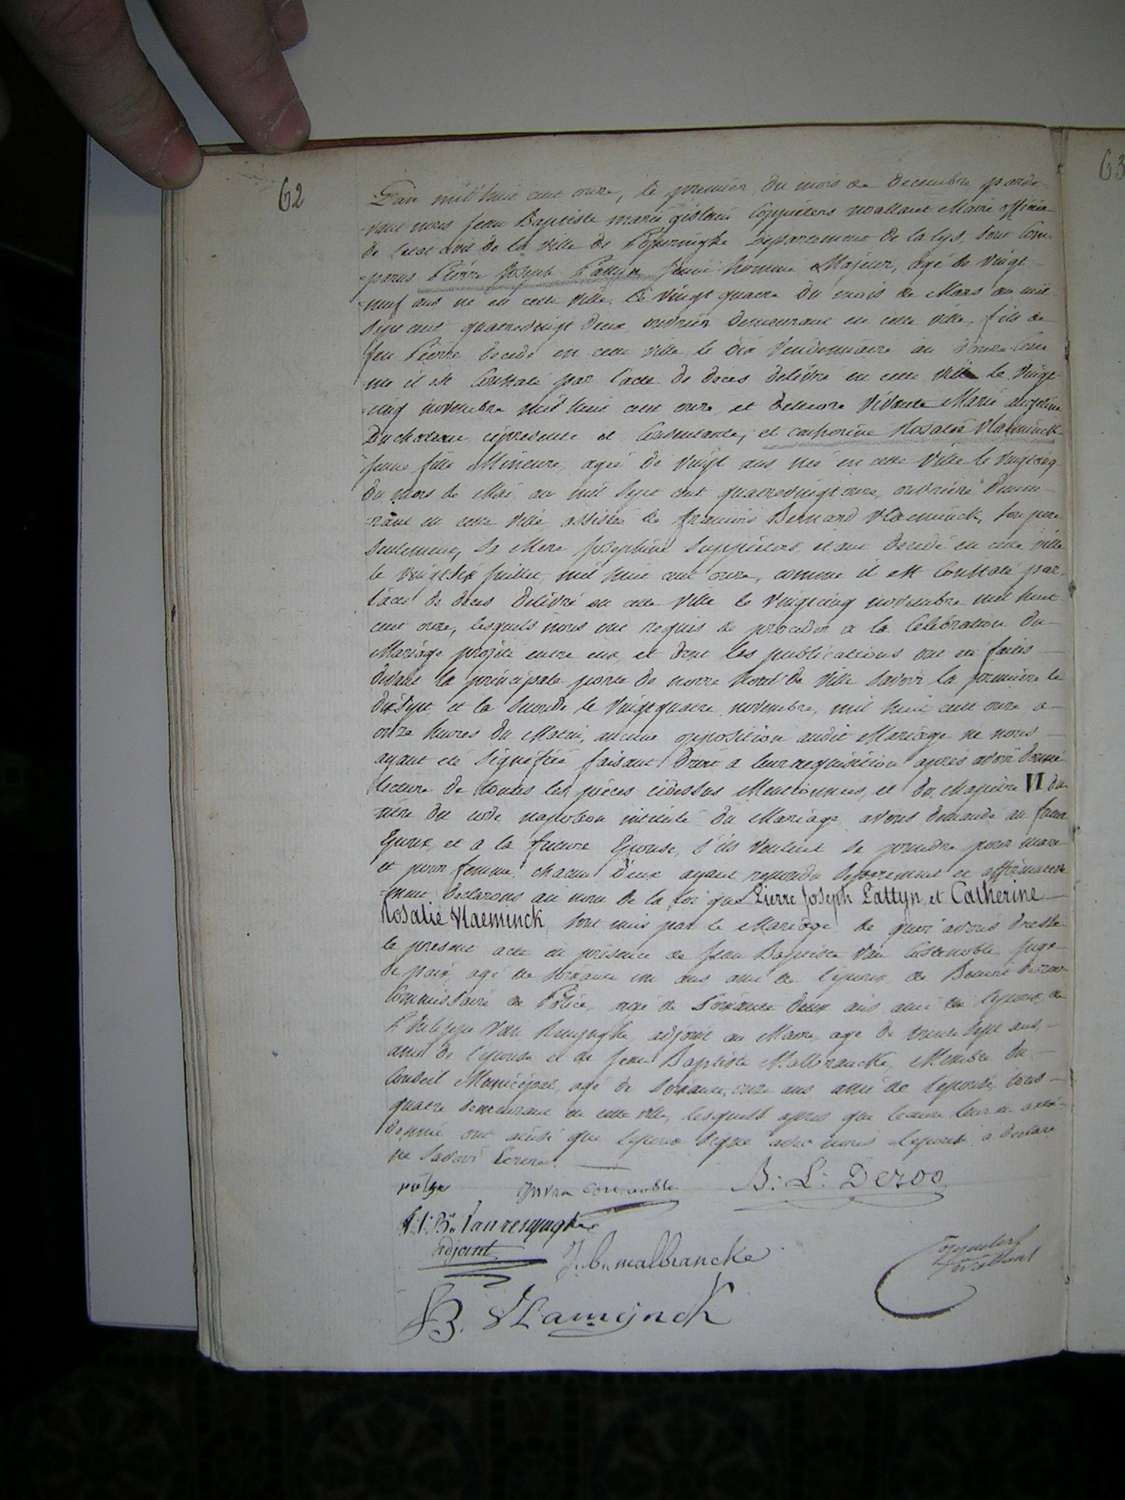 62
63
L'an mil huit cent onze, le premier du mois de Decembre pardevant
nous Jean Baptiste marie gislain Coppieters Maire officier
de l'etat civil de la ville de Poperinghe Departement de la Lys, sont Com-
-parus Pierre Joseph Pattyn jeune homme Majeur, agé de vingt
neuf ans né en cette ville, le vingt quatre du mois de Mars an mil
sept cent quatrevingt deux, ouvrier demeurant en cette ville, fils de
feu Pierre decedé en cette ville le dix Vendemiaire an comme
il est Constaté par l'acte de deces delivré en cette ville le vingt
-cinq novembre mil huit cent onze, et Vivante Marie
presente et Consentante, et catherine Rosalie Vlaeminck
jeune fille Mineure, agée de vingt ans née en cette Ville le vingtcinq
du mois de Mai an mil sept cent quatrevingt onze, ouvriere demeu-
-rant en cette ville, assistée de francois Bernard Vlaeminck, son pere
seulement, sa Mere Josephine étant decedé en cette ville
le vingt six juillet, mil huit cent onze, comme il est Constaté par
l'acte de deces delivré en cette ville le vingtcinq novembre mil huit
cent onze, lesquels nous ont requis de proceder a la Celebration du
Mariage projetté entre eux, et dont les publications ont été faites
devant la principale porte de notre hotel de ville savoir la premiere le
dixsept et la seconde le vingtquatre novembre, mil huit cent onze a
onze heures du Matin, aucune opposition audit Mariage ne nous
ayant été signifiée faisant droit a leur requisition apres avoir donné
lecture de toutes les pieces cidessus Mentionnées, et du chapitre VI du
titre du code napoleon intitulé du Mariage avons demandé au futur
Epoux, et a la future Epouse, s'ils veulent se prendre pour mari
et pour femme, chacun d'eux ayant repondu separement et affirmative-
-ment declarons au nom de la loi que Pierre Joseph Pattyn, et Catherine
Rosalie Vlaeminck, sont unis par le Mariage de quoi avons dressé
le present acte en présence de Jean Baptiste Van Costenoble juge
de paix, agé de soixante un ans ami de l'epoux, de Benoit
Commissaire de Police, agé de soixante deux ans ami de l'epoux, de
adjoint au Maire, agé de trente sept ans,
ami de l'epouse et de Jean Baptiste Malbrancke, Membre du
Conseil Municipal, agé de soixante onze ans ami de l'epouse, tous
quatre demeurant en cette ville, lesquels apres que lecture leur en a été
donnée ont ainsi que l'epoux signé avec nous l'epouse a declaré
ne savoir Ecrire.
B: L: Deroo
adjoint
J. b. malbrancke
B. Vlamijnck